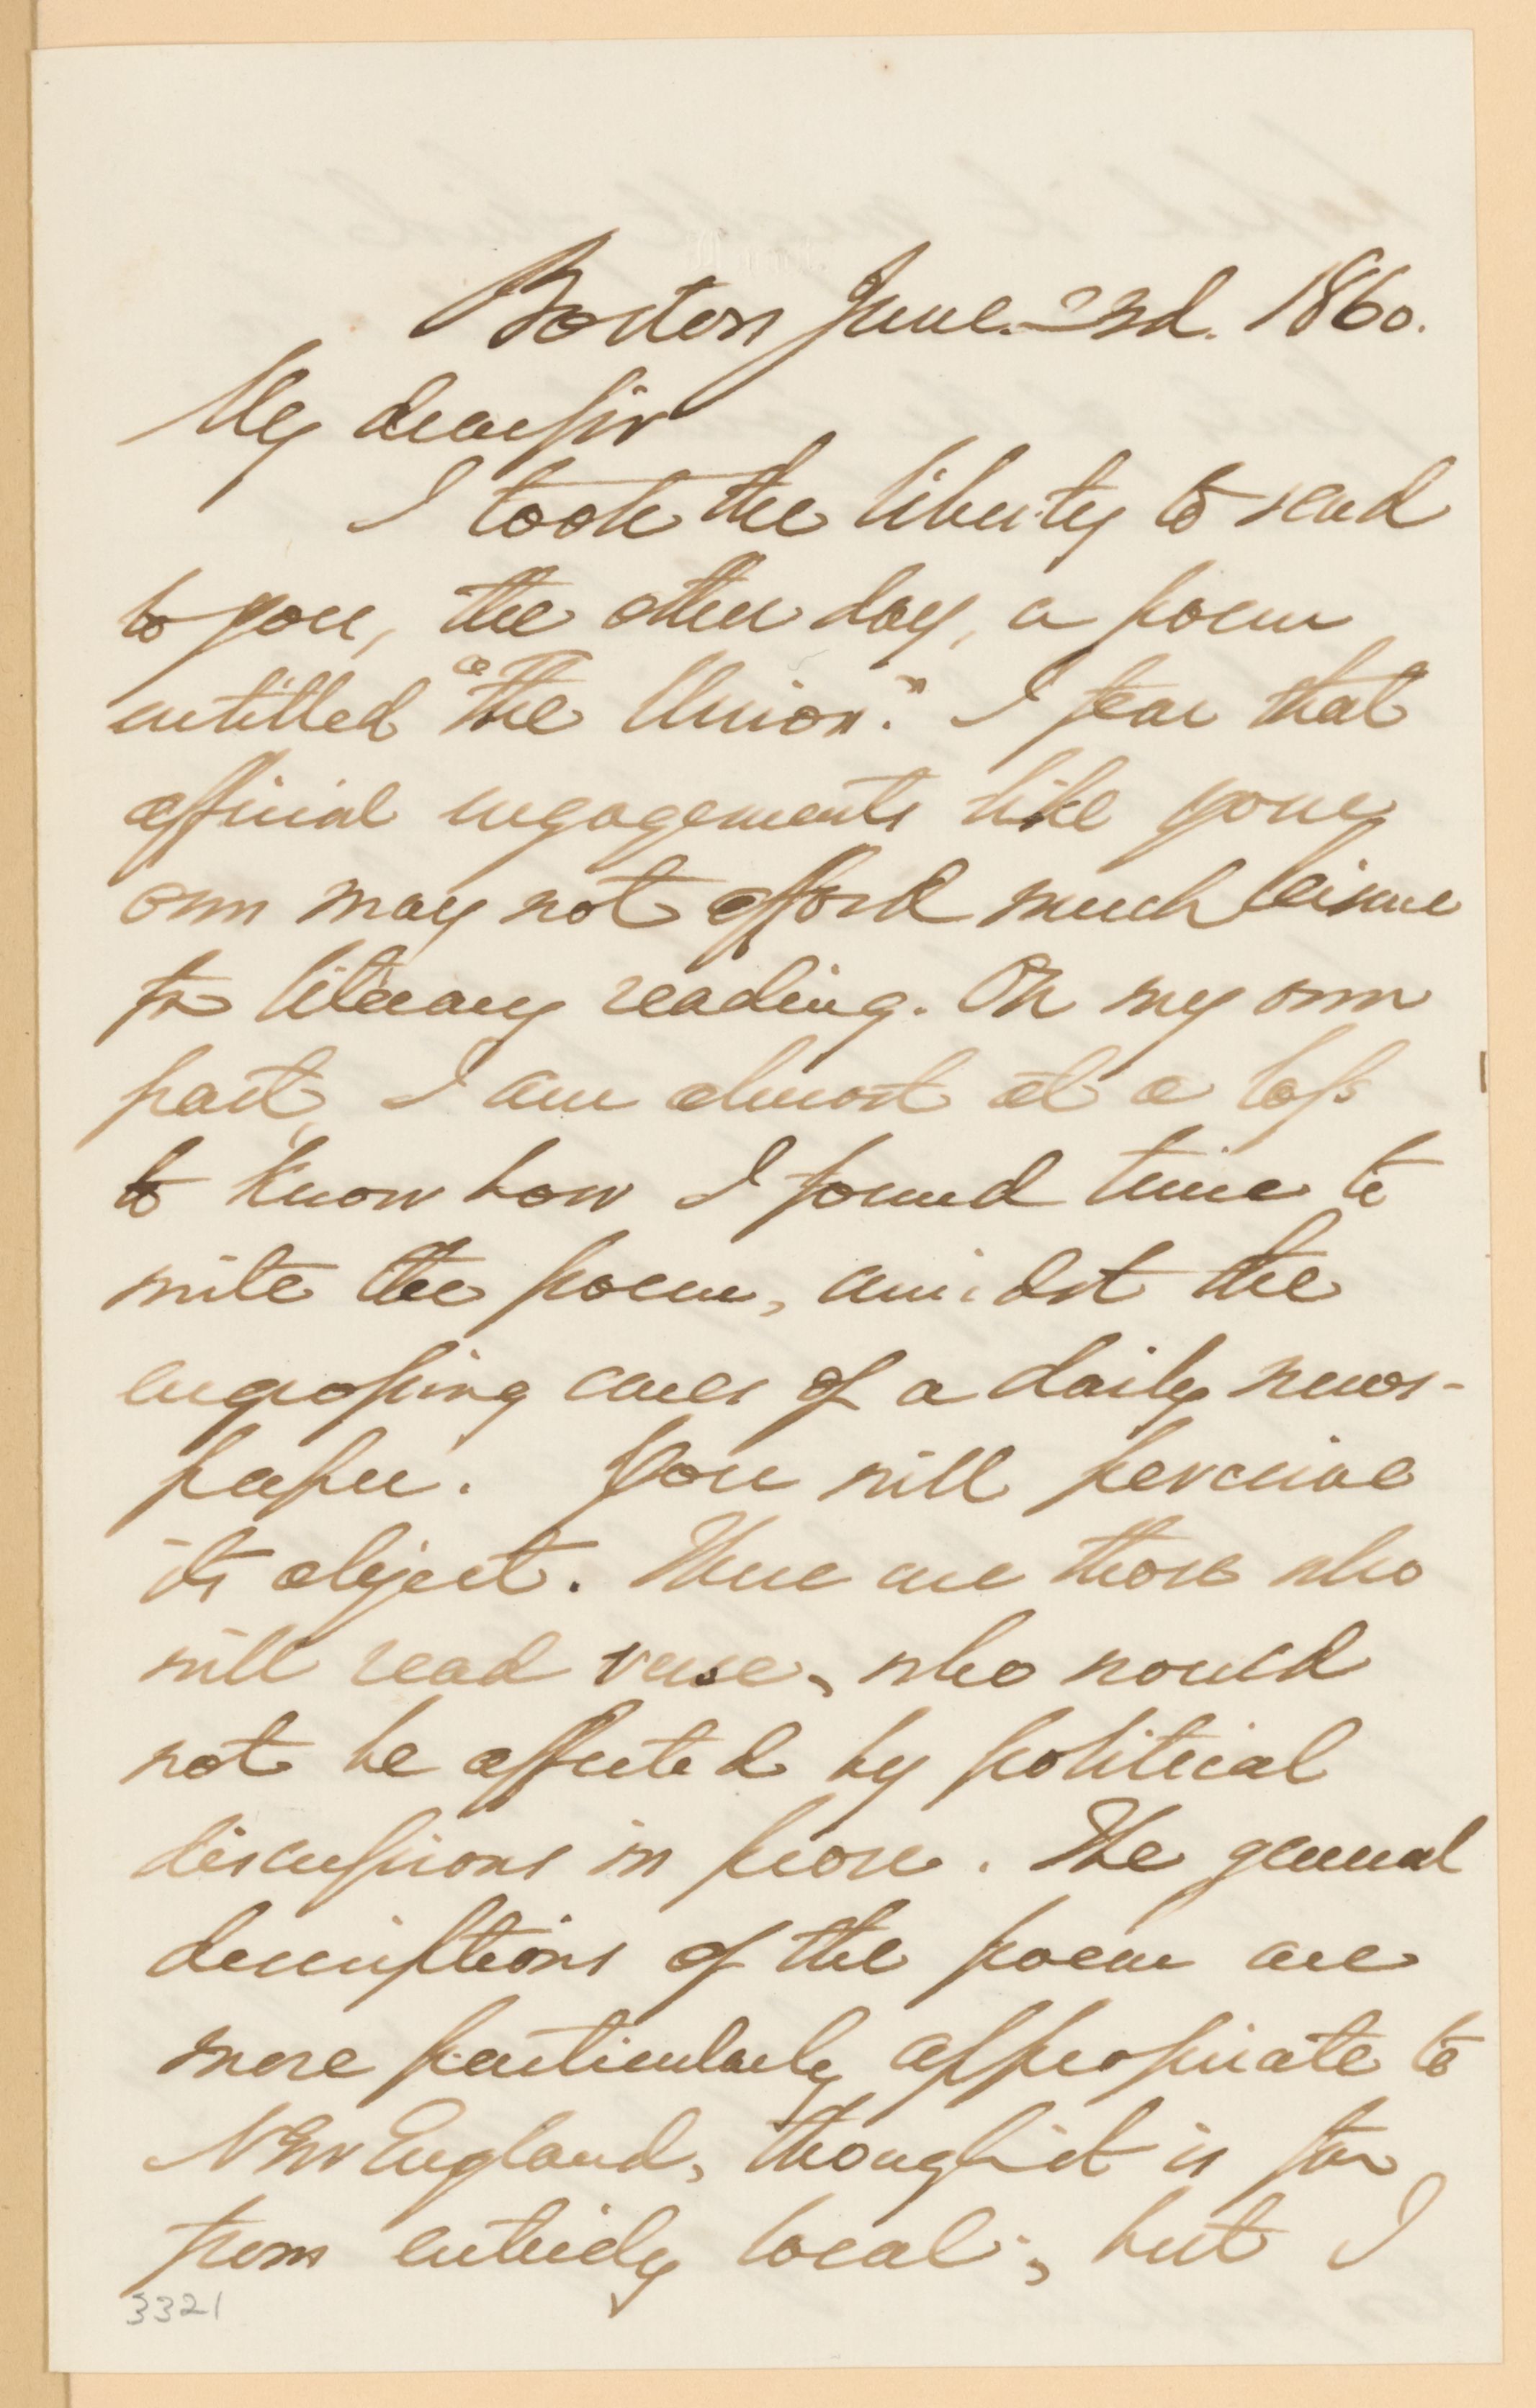 Boston June. 2nd. 1860.
My dear sir
I took the liberty to send
to you, the other day, a poem
entitled "The Union." I fear that
official engagements like your
own may not afford much leisure
for literary reading. On my own
part, I am almost at a loss
to know how I found time to
write the poem, amidst the
engrossing cares of a daily news-
paper. You will perceive
its object. There are those who
will read verse, who would
not be affected by political
discussions in prose. The general
descriptions of the poem are
more particularly appropriate to
New England, though it is far
from entirely local; but I
3321